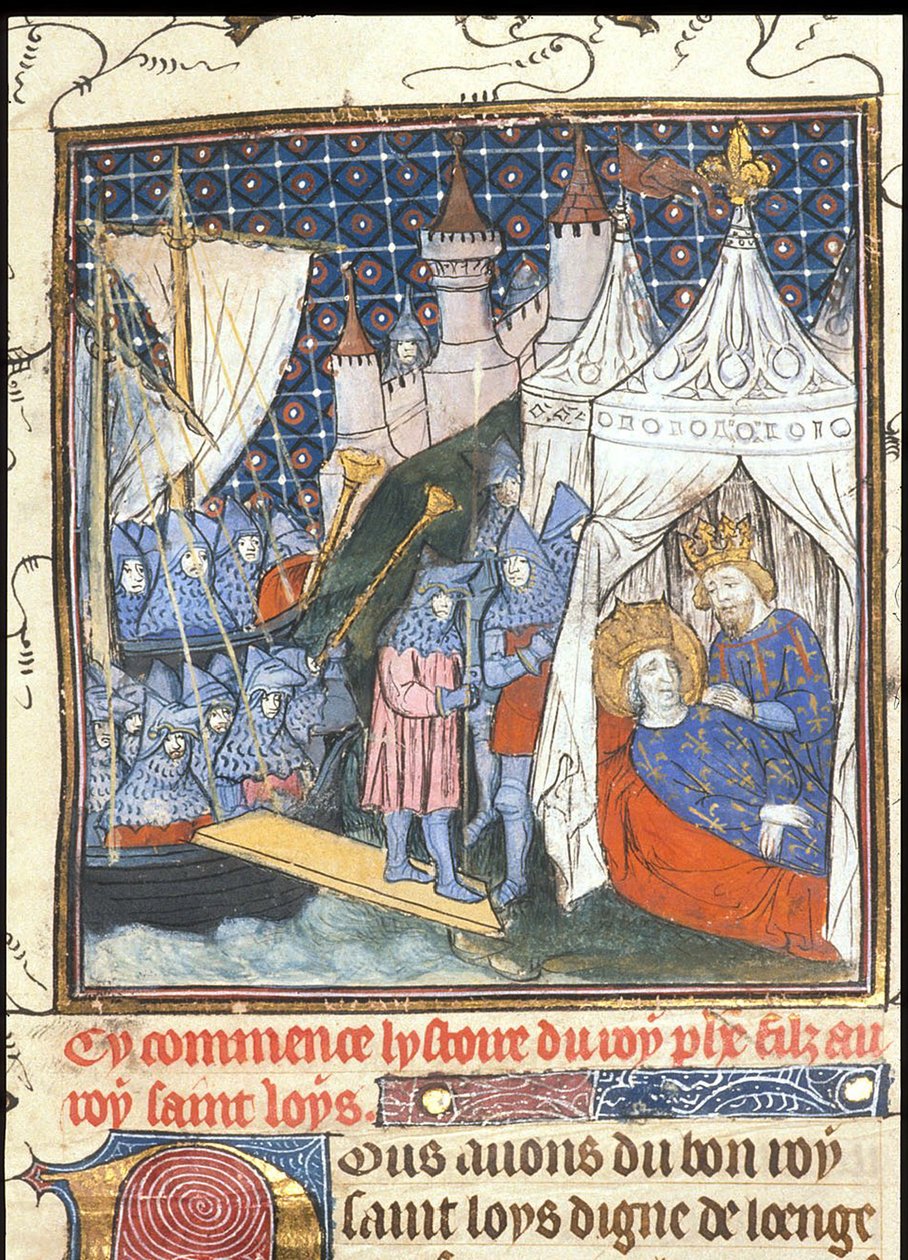 Cy commence lystoire du roy phe filz au
roy saint loys.
Nous auons du bon roy
saint loys digne de loenge